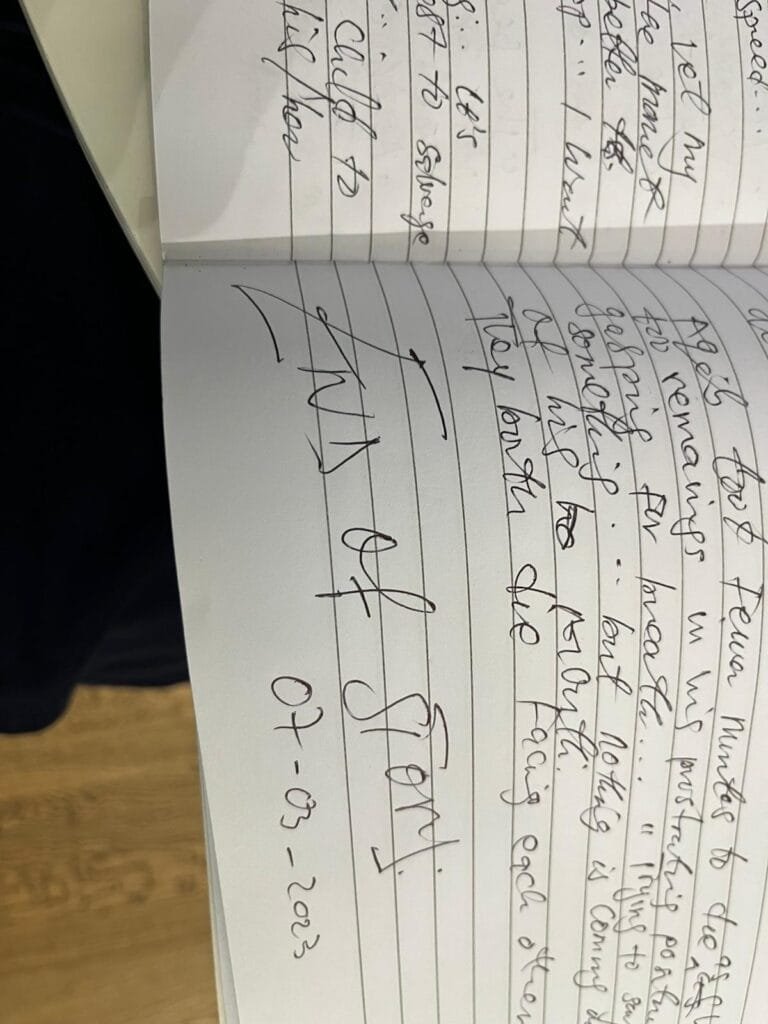 speed...
let my
better to
I want
... it's
to salvage
child to
his/her
Ageb took fewer minutes to die as
remainings in his prostrating position
gasping for breath... "trying to say
something... but nothing is coming
of his mouth.
They both die facing each other
END of STORY.
07-03-2023